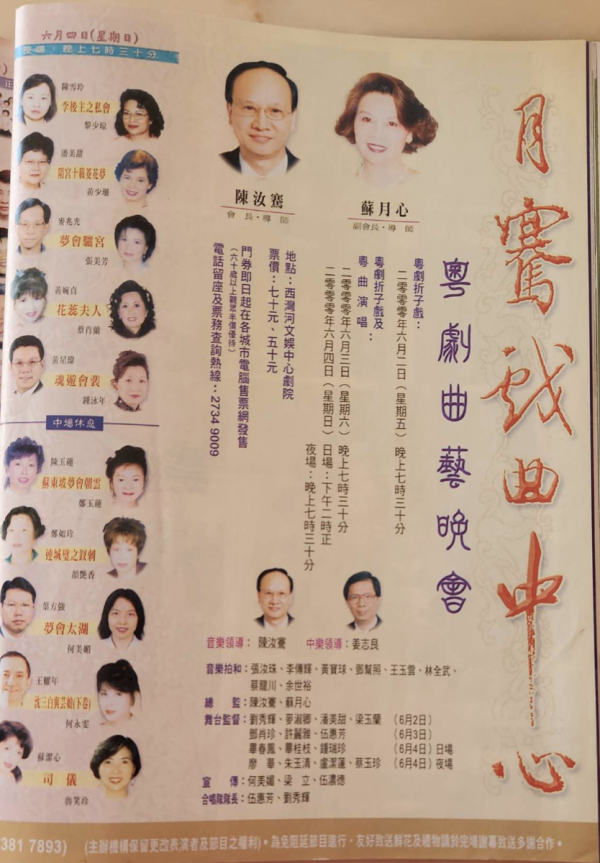 六月四日(星期日)
夜場：晚上七時三十分
陳雪玲
李後主之私會
黎少琼
潘美甜
隋宮十載菱花夢
黃少珊
麥兆光
夢會驪宮
張美芳
黃婉貞
花蕊夫人
蔡肖蘭
黃星瑋
魂遊會裴
鍾泳年
中場休息
陳玉蓮
蘇東坡夢會朝雲
鄭玉蓮
鄭如珍
連城璧之釵刺
顏艷香
葉方強
夢會太湖
何美媚
王耀年
沈三白與芸娘(下卷)
何永雯
蘇潔心
司儀
魯笑珍
陳汝騫
會長·導師
蘇月心
副會長·導師
月騫戲曲中心
粵劇曲藝晚會
粵劇折子戲：
二零零零年六月二日（星期五）晚上七時三十分
粵劇折子戲及
粵曲演唱：
二零零零年六月三日（星期六）晚上七時三十分
二零零零年六月四日（星期日）日場：下午二時正
夜場：晚上七時三十分
地點：西灣河文娛中心劇院
票價：七十元、五十元
門券即日起在各城市電腦售票網發售
（六十歲以上觀眾半價優待）
電話留座及票務查詢熱線：2734 9009
音樂領導：陳汝騫 中樂領導：姜志良
音樂拍和：張汝珠、李傳輝、黃寶球、鄧幫照、王玉雲、林全武、
蔡龍川、余世裕
總監：陳汝騫、蘇月心
舞台監督：劉秀輝、麥淑卿、潘美甜、梁玉蘭 （6月2日）
鄧肖珍、許麗雅、伍惠芳 （6月3日）
畢春鳳、畢桂枝、鍾瑞珍 （6月4日）日場
廖華、朱玉清、盧潔蓮、蔡玉珍 （6月4日）夜場
宣傳：何美媚、梁立、伍濃德
合唱隊隊長：伍惠芳、劉秀輝
381 7893) (主辦機構保留更改表演者及節目之權利)·為免阻延節目進行，友好致送鮮花及禮物請於完場謝幕致送多謝合作·